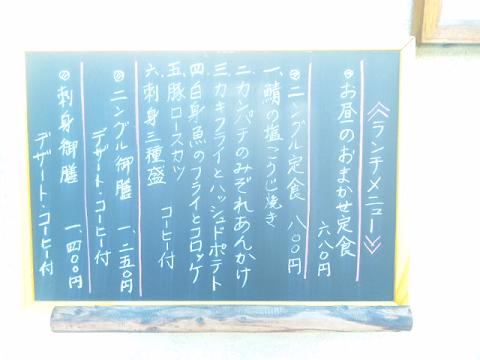 ≪ランチメニュー≫
㋐お昼のおまかせ定食
六八〇円
㋐ニングル定食 八〇〇円
一、鯖の塩こうじ焼き
二、カンパチのみぞれあんかけ
三、カキフライとハッシュドポテト
四、白身魚のフライとコロッケ
五、豚ロースカツ
六、刺身三種盛 コーヒー付
ニングル御膳 一、二五〇円
デザート・コーヒー付
刺身御膳 一、四〇〇円
デザート・コーヒー付